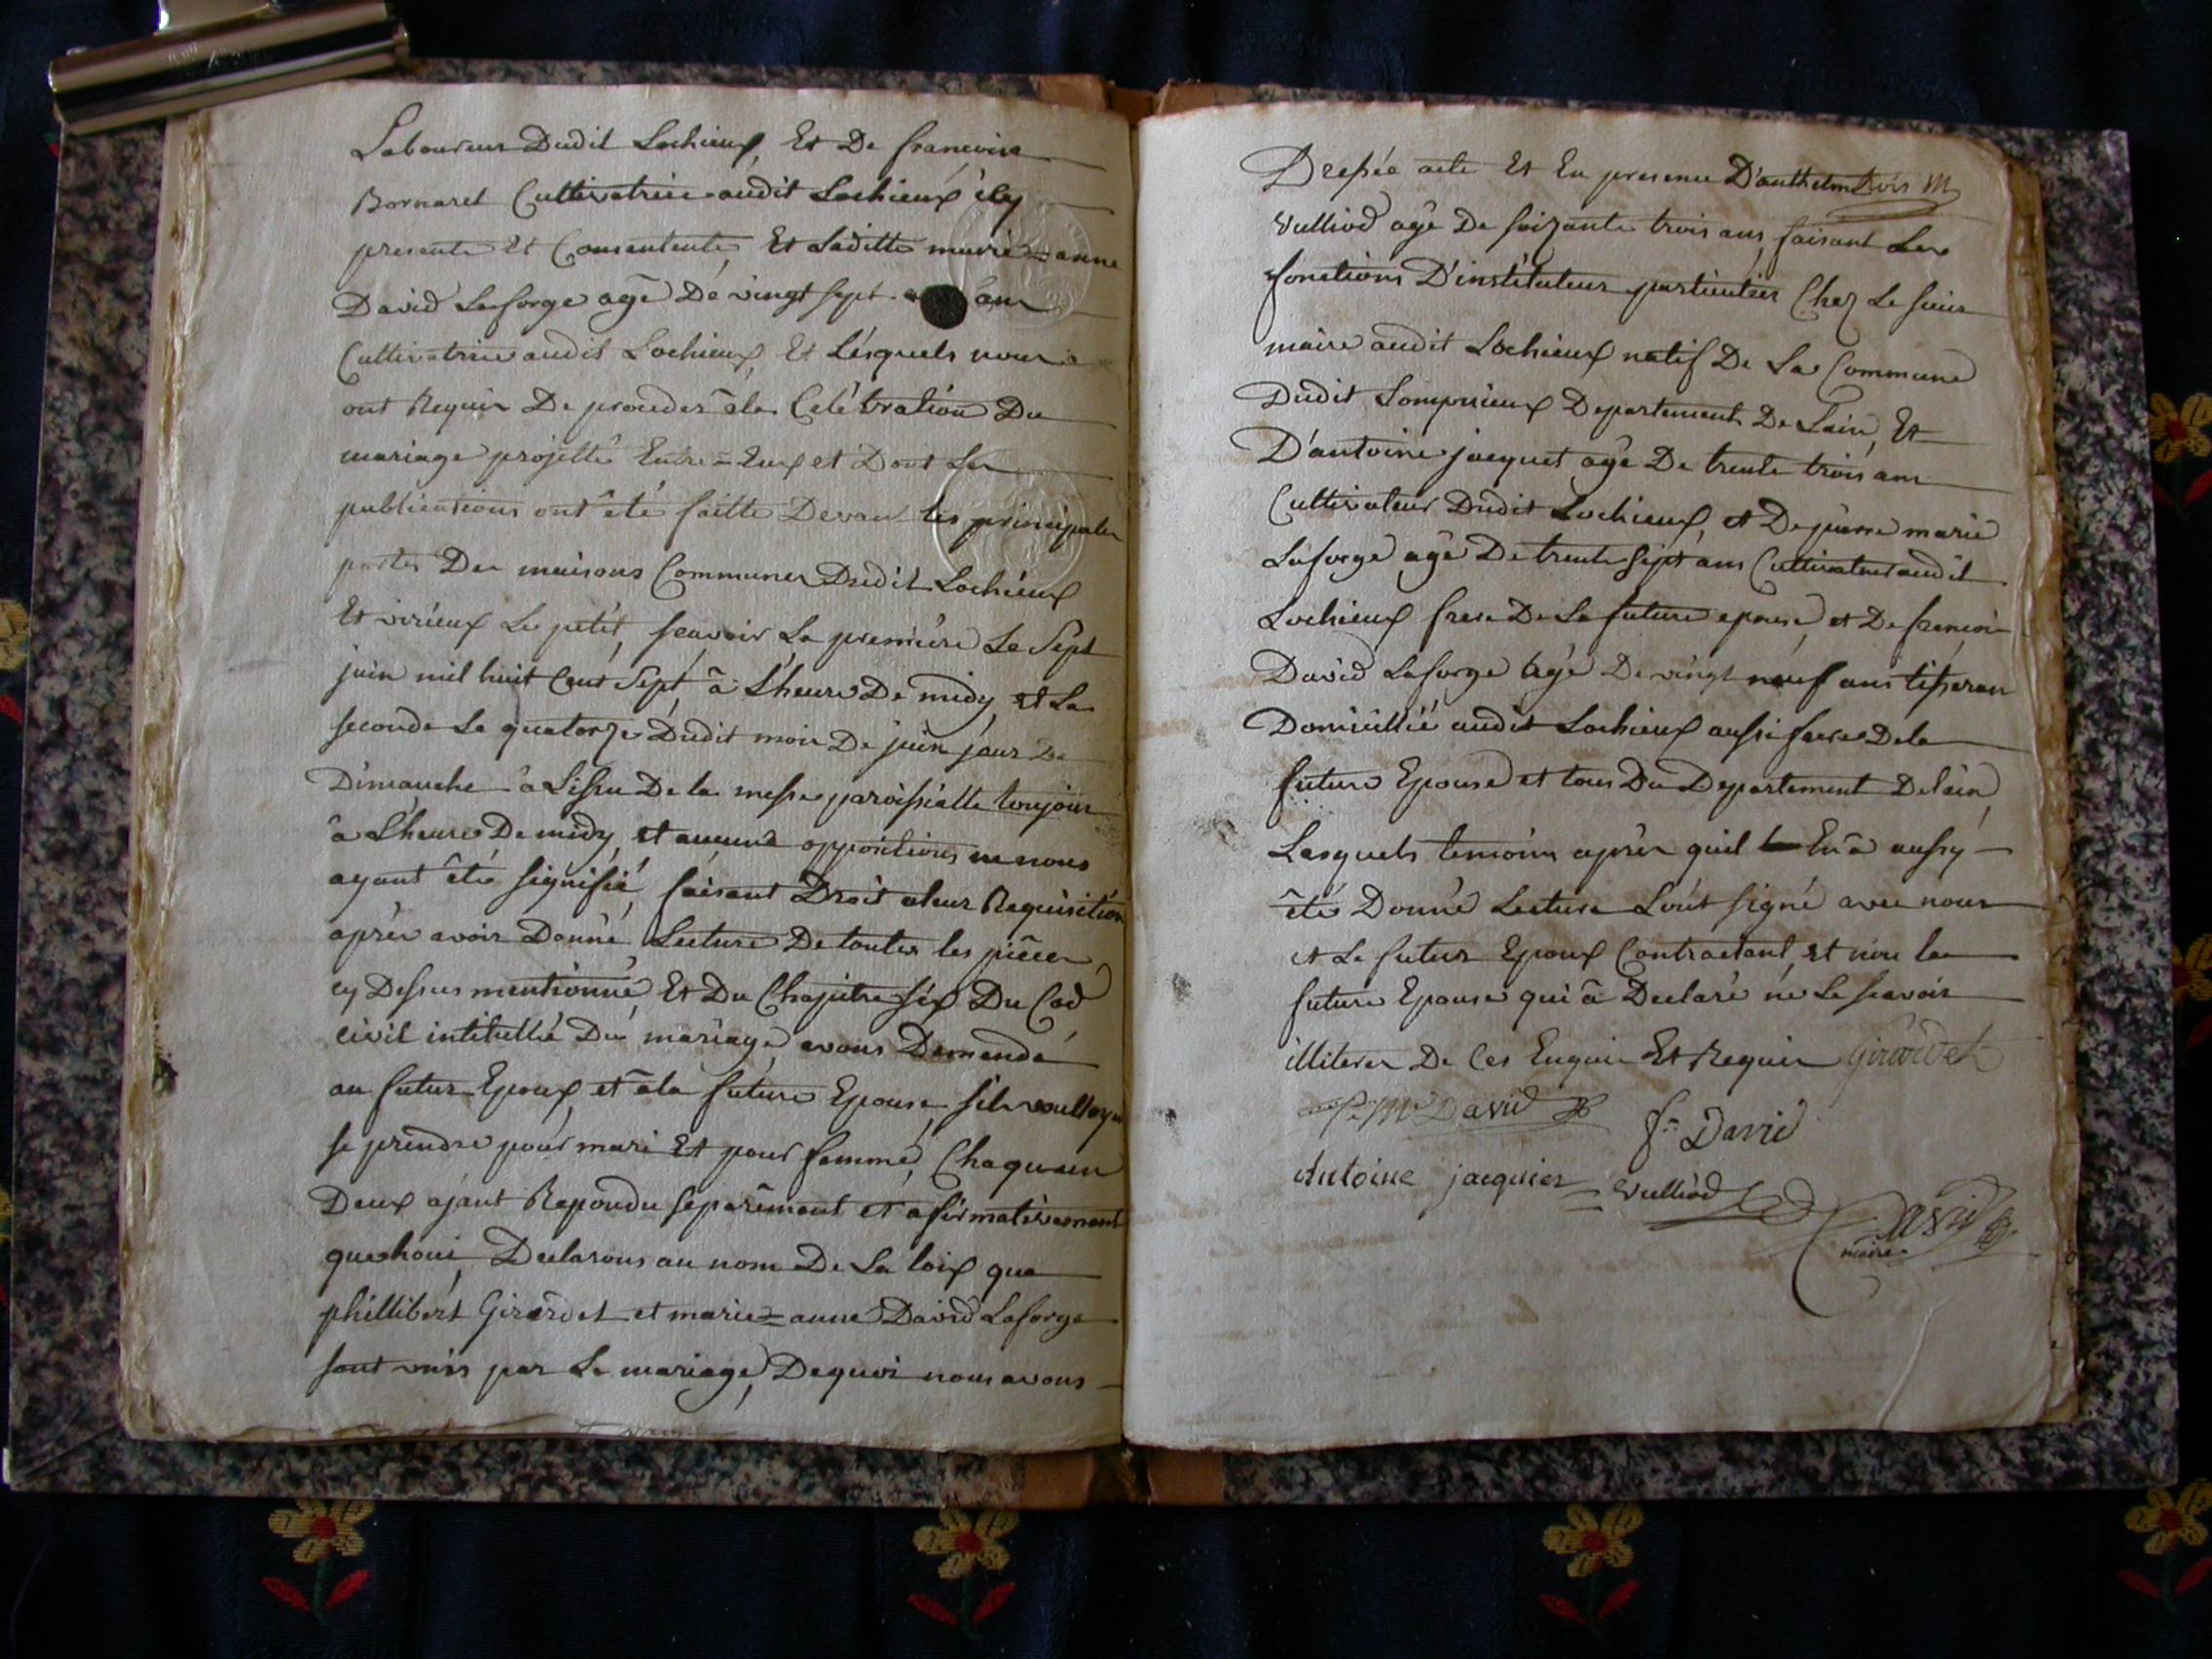 Laboureur Dudit Lochieux, Et De francoise
Bornaret Cultivatrice audit Lochieux icy
presente Et Consentente, Et Laditte marie=anne
David Laforge agé Dé vingt sept ans
Cultivatrice audit Lochieux, Et Lésquels nous
ont Requis De proceder àla Celébration Du
mariage projetté Entre=Eux et Dont Les
publications ont été faitte Devant les principales
portes Des maisons Communes Dudit Lochieux
Et virieux Le petit, scavoir La premiere Le Sept
juin mil huit Cent Sept, à L'heure De midy, et La
seconde Le quatorze Dudit mois De juin jour De
Dimanche à Lissu De la messe paroissialle toujour
à L'heure De midy, et aucune oppositions ne nous
ayant été signifié, faisant Droit aleur Requisition
après avoir Donné Lecture De toutes les pièces
cy Dessus mentionné, Et Du Chapitre six Du Cod
civil intitullé Du mariage, avons Demandé
au futur Epoux, et àla future Epouse, sils voulloyen
se prendre pour mari Et pour femme, Chaqu'un
Deux ajant Repondu separément et afirmativement
que houi, Declarons au nom De La loix que
phillibert Girardet et marie=anne David Laforge
sont unis par Le mariage, Dequoi nous avons
Dressée acte Et En presence D'anthelme
Vulliod agé De soizante trois ans, faisant Les
fonctions D'instituteur particulier Chez Le sieur
maire audit Lochieux natif De La Commune
Dudit Sompnieux Departement De Lain, Et
D'antoine jacquet agé De trente trois ans
Cultivateur Dudit Lochieux, et De pierre marie
Laforge agé De trente sept ans Cultivateur audit
Lochieux frere De La future epouse, et De francois
David Laforge agé De vingt neuf ans tisseran
Domicillié audit Lochieux aussi frere Dela
future Epouse et tous Du Departement Delain,
Lesquels temoins après quil En à aussy
été Donné Lecture L'ont signé avec nous
et Le futur Epoux Contractant, et non la
future Epouse qui à Declaré ne Le scavoir
illiterer De Ces Enquis Et Requis Girardet
P. M. David
f. David
Antoine jacquier
Vulliod
David
maire